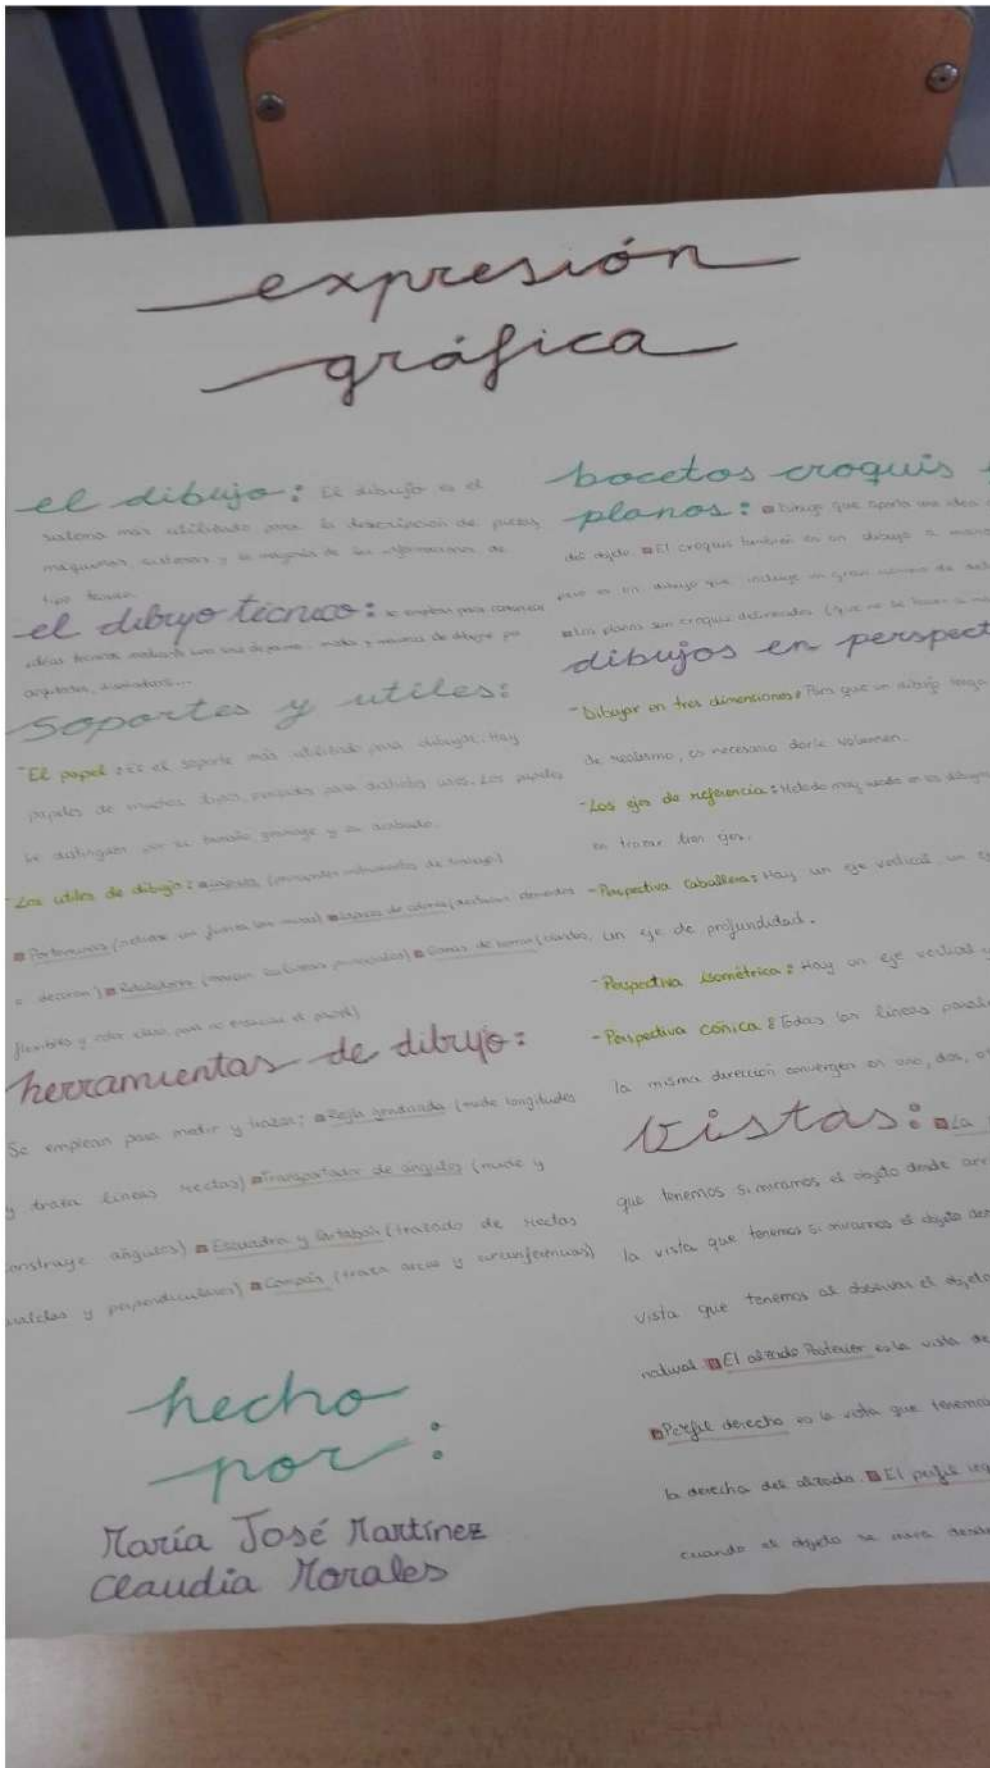 expresión
gráfica
el dibujo: El dibujo es el
más utilizado para la descripción de piezas,
maquinas, sistemas y la mayoría de las informaciones de
tipo
el dibujo técnico: se emplea para comunicar
ideas técnicas
arquitectos,
soportes y utiles:
-El papel: Es el soporte más utilizado para dibujar. Hay
papeles de muchos tipos, para distintos usos. Los papeles
se distinguen por su tamaño, y su acabado.
-Los utiles de dibujo: de trabajo)
Portaminas
o decoran)
flexibles y color claro para no ensuciar el papel)
herramientas de dibujo:
Se emplean para medir y trazar; Regla graduada (mide longitudes
y traza líneas rectas) Transportador de ángulos (mide y
onstruye ángulos) Escuadra y Cartabón (trazado de rectas
y perpendiculares) Compás (traza arcos y circunferencias)
hecho
por:
María José Martínez
Claudia Morales
bocetos croquis
planos: Dibujo que aporta una idea
del objeto. El croquis también es un dibujo a mano
pero es un dibujo que incluye un gran número de
Los planos son croquis delineados (que no se hacen a
dibujos en perspect
-Dibujar en tres dimensiones: Para que un dibujo tenga
de realismo, es necesario darle volumen.
-Los ejes de referencia: Método muy usado en los dibujos
en trazar tres ejes.
-Perspectiva Caballera: Hay un eje vertical, un
un eje de profundidad.
-Perspectiva isométrica: Hay un eje vertical y
-Perspectiva cónica: Todas las líneas
la misma dirección convergen en uno, dos, o
vistas: La
que tenemos si miramos el objeto desde
la vista que tenemos si miramos el objeto
vista que tenemos al observar el objeto
natural. El alzado Posterior es la vista
Perfil derecho es la vista que tenemos
la derecha del alzado. El perfil
cuando el objeto se mira